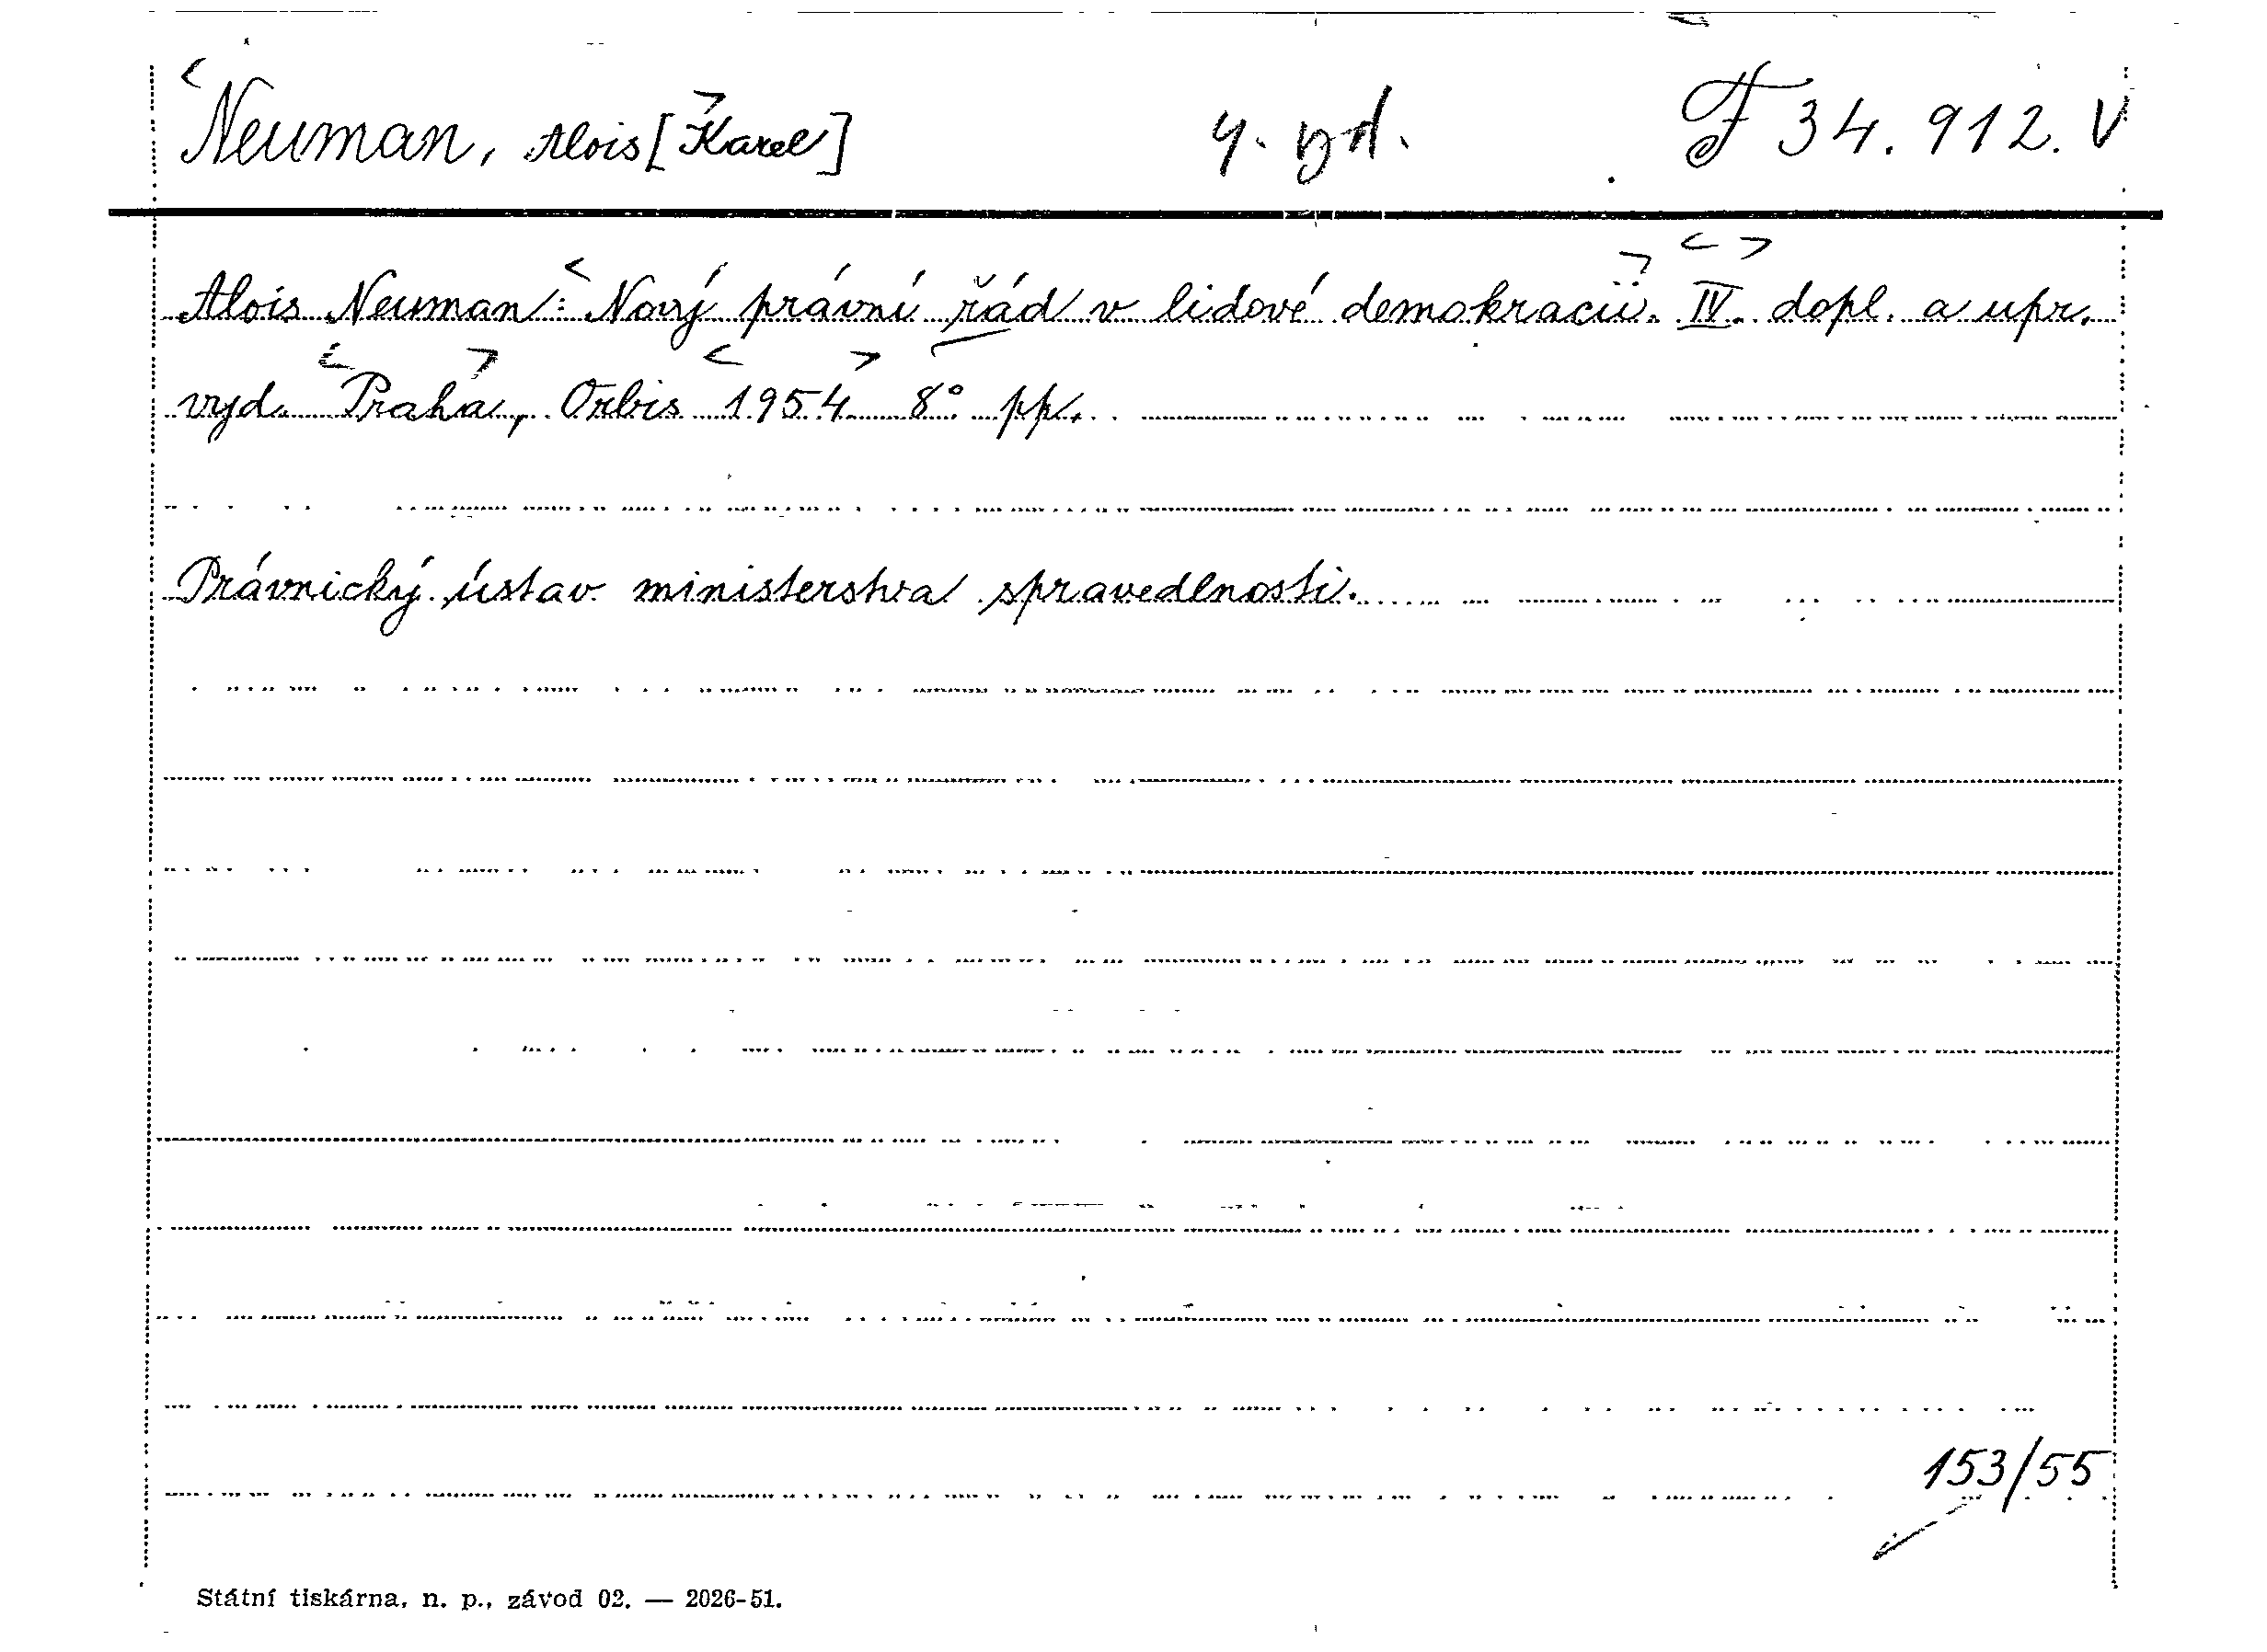 Neuman, Alois [Karel] 4. vyd. F 34.912. V
Alois Neuman: Nový právní řád v lidové demokracii. IV. dopl. a upr.
vyd. Praha, Orbis 1954 8° pp.
Právnický ústav ministerstva spravedlnosti.
153/55
Státní tiskárna, n. p., závod 02. — 2026-51.